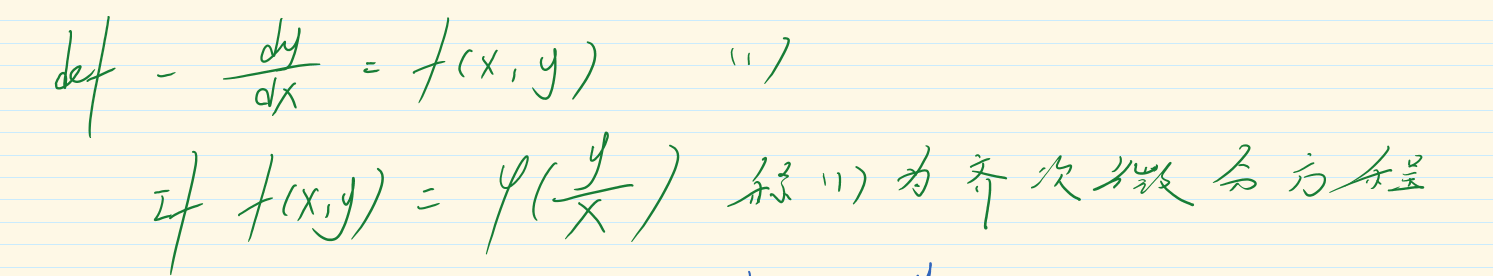 def - dy/dx = f(x, y) (1)
If f(x,y) = φ(y/x) 称(1)为齐次微分方程